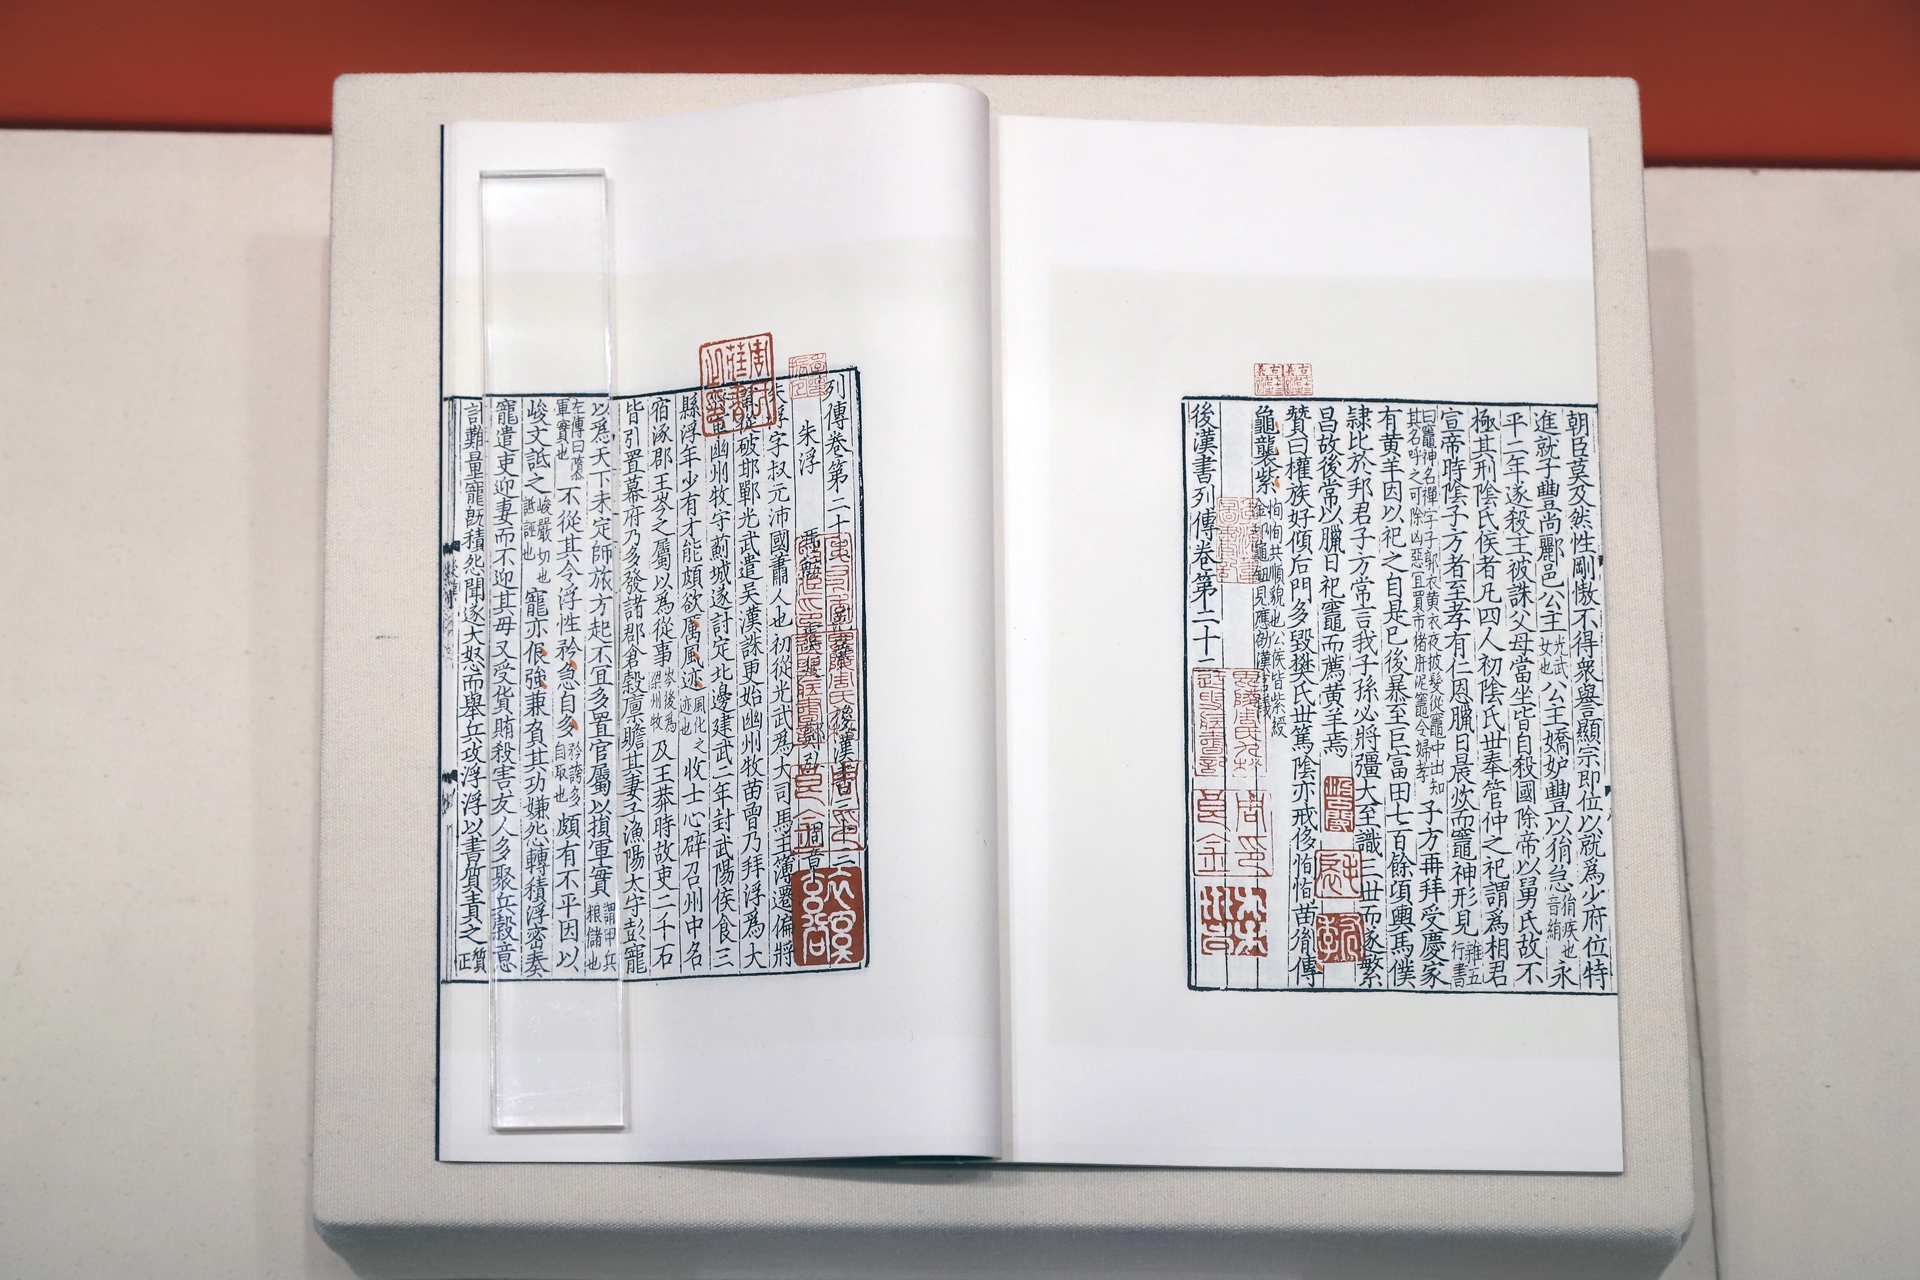 朝臣莫及然性剛慠不得衆譽顯宗即位以就爲少府位特
進就子豐尚酈邑公主光武女也公主嬌妒豐亦狷急狷疾也音絹永
平二年遂殺主被誅父母當坐皆自殺國除帝以舅氏故不
極其刑陰氏侯者凡四人初陰氏世奉管仲之祀謂爲相君
宣帝時陰子方者至孝有仁恩臘日晨炊而竈神形見雜五行書
曰竈神名禪字子郭衣黄衣夜披髮從竈中出知其名呼之可除凶惡宜買市豬肝泥竈令婦孝子方再拜受慶家
有黄羊因以祀之自是已後暴至巨富田七百餘頃輿馬僕
隸比於邦君子方常言我子孫必將彊大至識三世而遂繁
昌故後常以臘日祀竈而薦黄羊焉
贊曰權族好傾后門多毀樊氏世篤陰亦戒侈恂恂苗胤傳
龜襲紫恂恂恭順貌也公侯皆紫綬金印龜鈕見應劭漢官儀
後漢書列傳卷第二十二
列傳卷第二十三 後漢書三十三
朱浮 馮魴 虞延 鄭弘 周章
朱浮字叔元沛國蕭人也初從光武爲大司馬主簿遷偏將
軍從破邯鄲光武遣吳漢誅更始幽州牧苗曾乃拜浮爲大
將軍幽州牧守薊城遂討定北邊建武二年封武陽侯食三
縣浮年少有才能頗欲厲風迹風化之迹也收士心辟召州中名
宿涿郡王岑之屬以爲從事岑後爲梁州牧及王莽時故吏二千石
皆引置幕府乃多發諸郡倉穀廩贍其妻子漁陽太守彭寵
以爲天下未定師旅方起不宜多置官屬以損軍實謂甲兵根儲也
左傳曰隳軍實也不從其令浮性矜急自多矜誇多自取也頗有不平因以
峻文詆之峻嚴切也詆誣也寵亦佷強兼負其功嫌怨轉積浮密奏
寵遣吏迎妻而不迎其母又受貨賄殺害友人多聚兵穀意
計難量寵旣積怨聞遂大怒而舉兵攻浮浮以書質責之質正